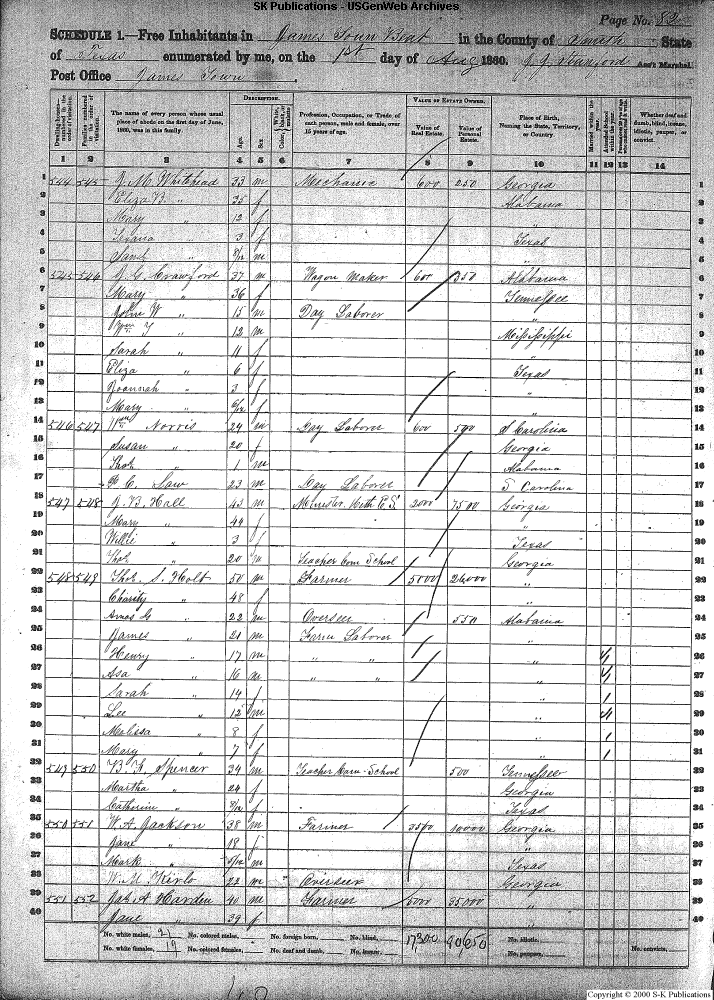 SK Publications - USGenWeb Archives
Page No. 82
SCHEDULE 1.—Free Inhabitants in James Town Beat in the County of Smith State
of Texas enumerated by me, on the 1st day of Aug 1860. Ass't Marshal.
Post Office James Town
DESCRIPTION. VALUE OF ESTATE OWNED.
The name of every person whose usual place of abode on the first day of June, 1860, was in this family
Age. Sex.
Profession, Occupation, or Trade of each person, male and female, over 15 years of age.
Value of Real Estate. Value of Personal Estate.
Place of Birth, Naming the State, Territory, or Country.
Whether deaf and dumb, blind, insane, idiotic, pauper, or convict.
1 2 3 4 5 6 7 8 9 10 11 12 13 14
1 544 545 J. M. Whitehead 33 m Mechanic 600 250 Georgia 1
2 Eliza B. " 35 f Alabama 2
3 Mary " 12 f " 3
4 Texana " 3 f Texas 4
5 " m " 5
6 545 546 Crawford 37 m Wagon Maker 600 350 Alabama 6
7 Mary " 36 f Tennessee 7
8 John W " 15 m Day Laborer " 8
9 Wm T " 12 m Mississippi 9
10 Sarah " 11 f " 10
11 Eliza " 6 f Texas 11
12 Roannah " 3 f " 12
13 Mary " 6/12 f " 13
14 546 547 Wm Norris 24 m Day Laborer 600 500 S Carolina 14
15 Susan " 20 f Georgia 15
16 Thos " 1 m Alabama 16
17 Law 23 m Day Laborer S Carolina 17
18 547 548 J. B. Hall 43 m Minister Meth E S. 2000 7500 Georgia 18
19 Mary " 44 f " 19
20 Willie " 3 f Texas 20
21 Thos " 20 m Teacher Com School Georgia 21
22 548 549 Thos. S. Holt 50 m Farmer 5000 26,000 " 22
23 Charity " 48 f " 23
24 Amos G " 22 m Overseer 550 Alabama 24
25 James " 21 m Farm Laborer " 25
26 Henry " 17 m " " " 26
27 Asa " 16 m " " " 27
28 Sarah " 14 f " 1 28
29 Lee " 12 m " 29
30 Malissa " 8 f " 1 30
31 Mary " 7 f " 1 31
32 549 550 B. F. Spencer 34 m Teacher Com. School 500 Tennessee
33 Martha " 24 f Georgia
34 Catherine " f Texas
35 550 551 W. A. Jackson 38 m Farmer 3500 10000 Georgia
36 Jane " 18 f "
37 Mark " m Texas
38 22 m Overseer Georgia
39 551 552 Jas. A Harden 40 m Farmer 6000 35000 "
40 Jane " 39 f "
No. white males, 21 No. colored males, No. foreign born, No. blind, 17,300 90,650 No. idiotic,
No. white females, 19 No. colored females, No. deaf and dumb, No. insane, No. paupers, No. convicts,
Copyright © 2000 S-K Publications